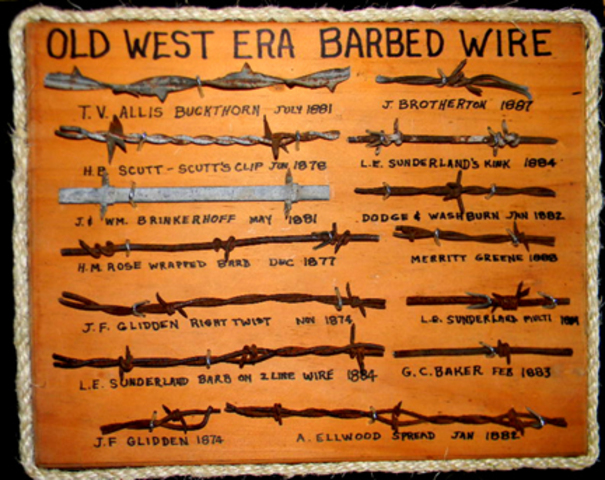 OLD WEST ERA BARBED WIRE
T.V. ALLIS BUCKTHORN JULY 1881
J. BROTHERTON 1887
H.B. SCUTT - SCUTT'S CLIP JUN 1878
L.E. SUNDERLAND'S KINK 1884
J. & WM. BRINKERHOFF MAY 1881
DODGE & WASHBURN JAN 1882
H.M. ROSE WRAPPED BARB DEC 1877
MERRITT GREENE
J.F. GLIDDEN RIGHT TWIST NOV 1874
L.E. SUNDERLAND MULTI
L.E. SUNDERLAND BARB ON 2 LINE WIRE 1884
G.C. BAKER FEB 1883
J.F GLIDDEN 1874
A. ELLWOOD SPREAD JAN 1882